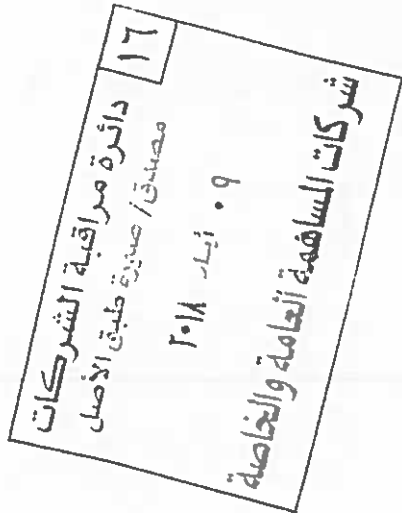 ١٦
دائرة مراقبة الشركات
مصدق/ صورة طبق الأصل
٠٩ أيار ٢٠١٨
شركات المساهمة العامة والخاصة